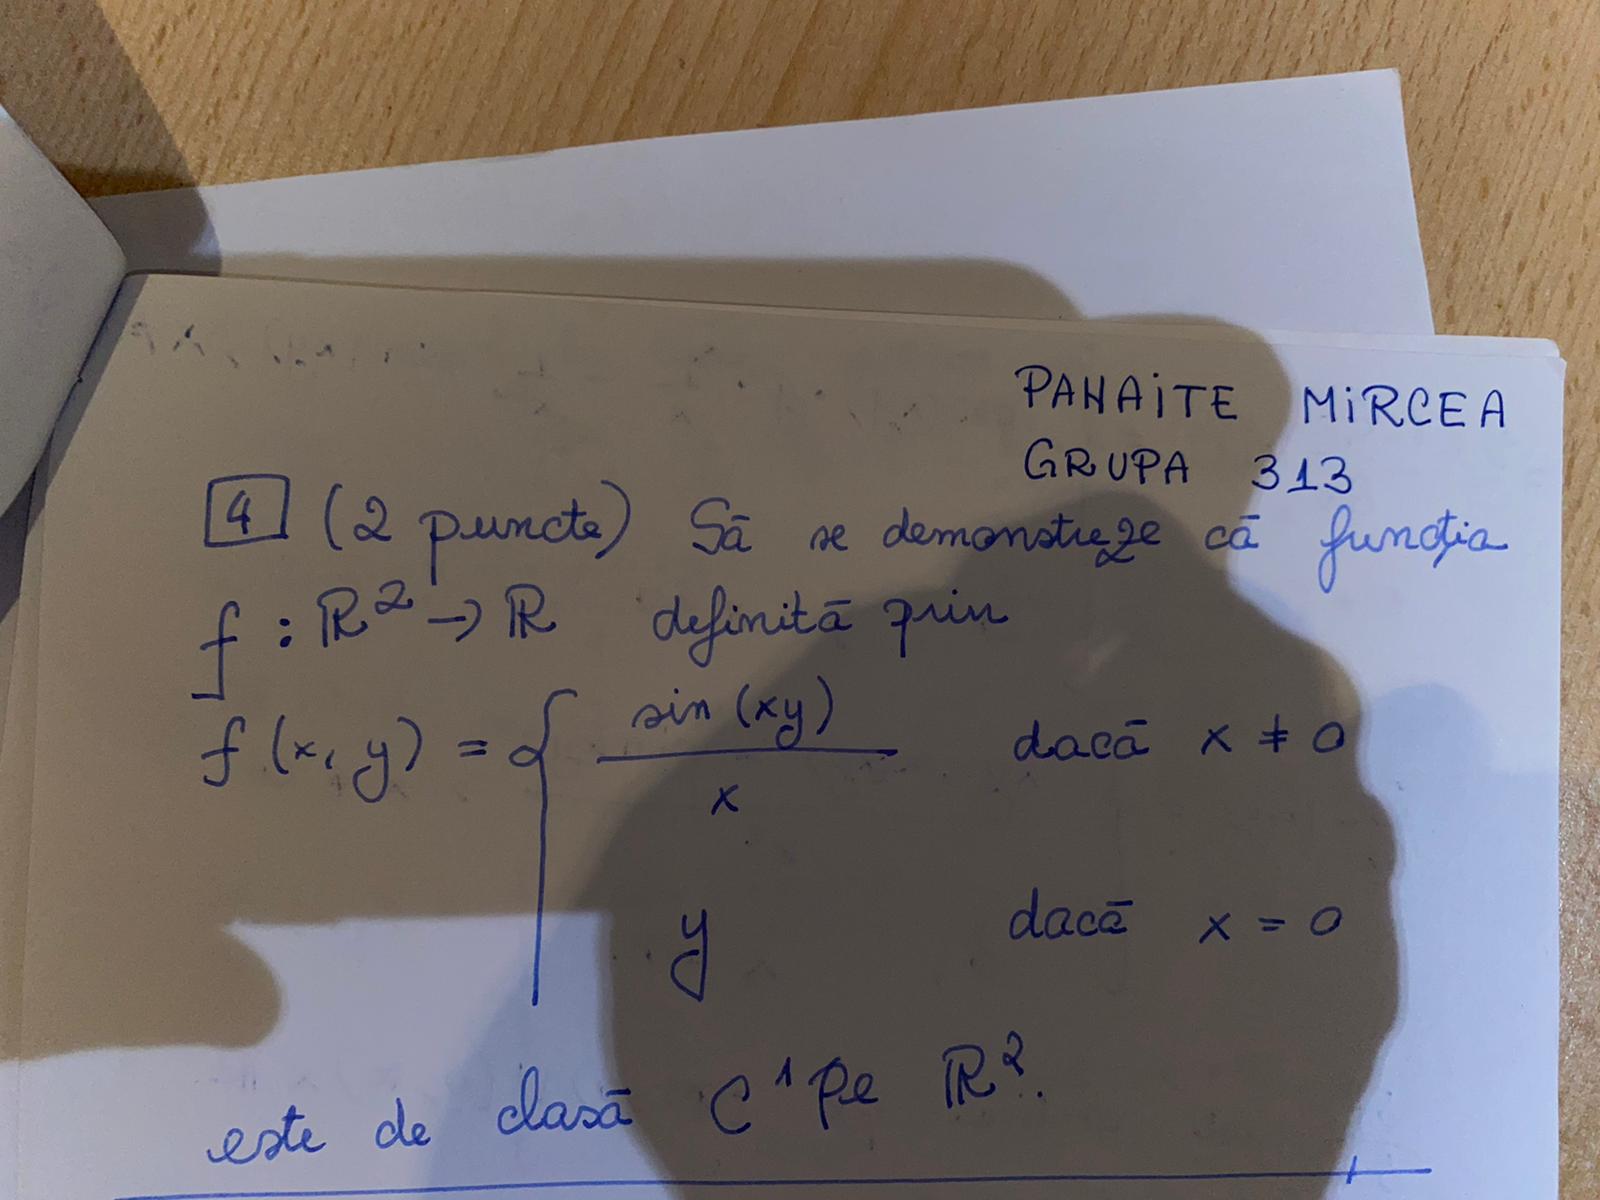 PANAITE MIRCEA
GRUPA 313
4 (2 puncte) Să se demonstreze că funcția
f : ℝ² → ℝ definită prin
f (x, y) = { sin (xy) / x dacă x ≠ 0
y dacă x = 0
este de clasă C¹ pe ℝ².